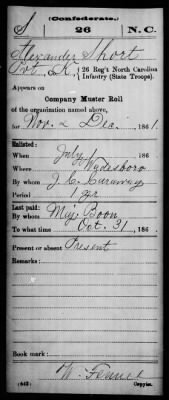 (Confederate.)
S 26 N.C.
Alexander Short
Pvt, Co. K, 26 Reg't North Carolina
Infantry (State Troops).
Appears on
Company Muster Roll
of the organization named above,
for Nov. & Dec., 1861.
Enlisted:
When July 1, 186
Where Wadesboro
By whom J. C. Caraway
Period 1 yr
Last paid:
By whom Maj. Boon
To what time Oct. 31, 186
Present or absent Present
Remarks:
Book mark:
W. Fennel
(642) Copyist.